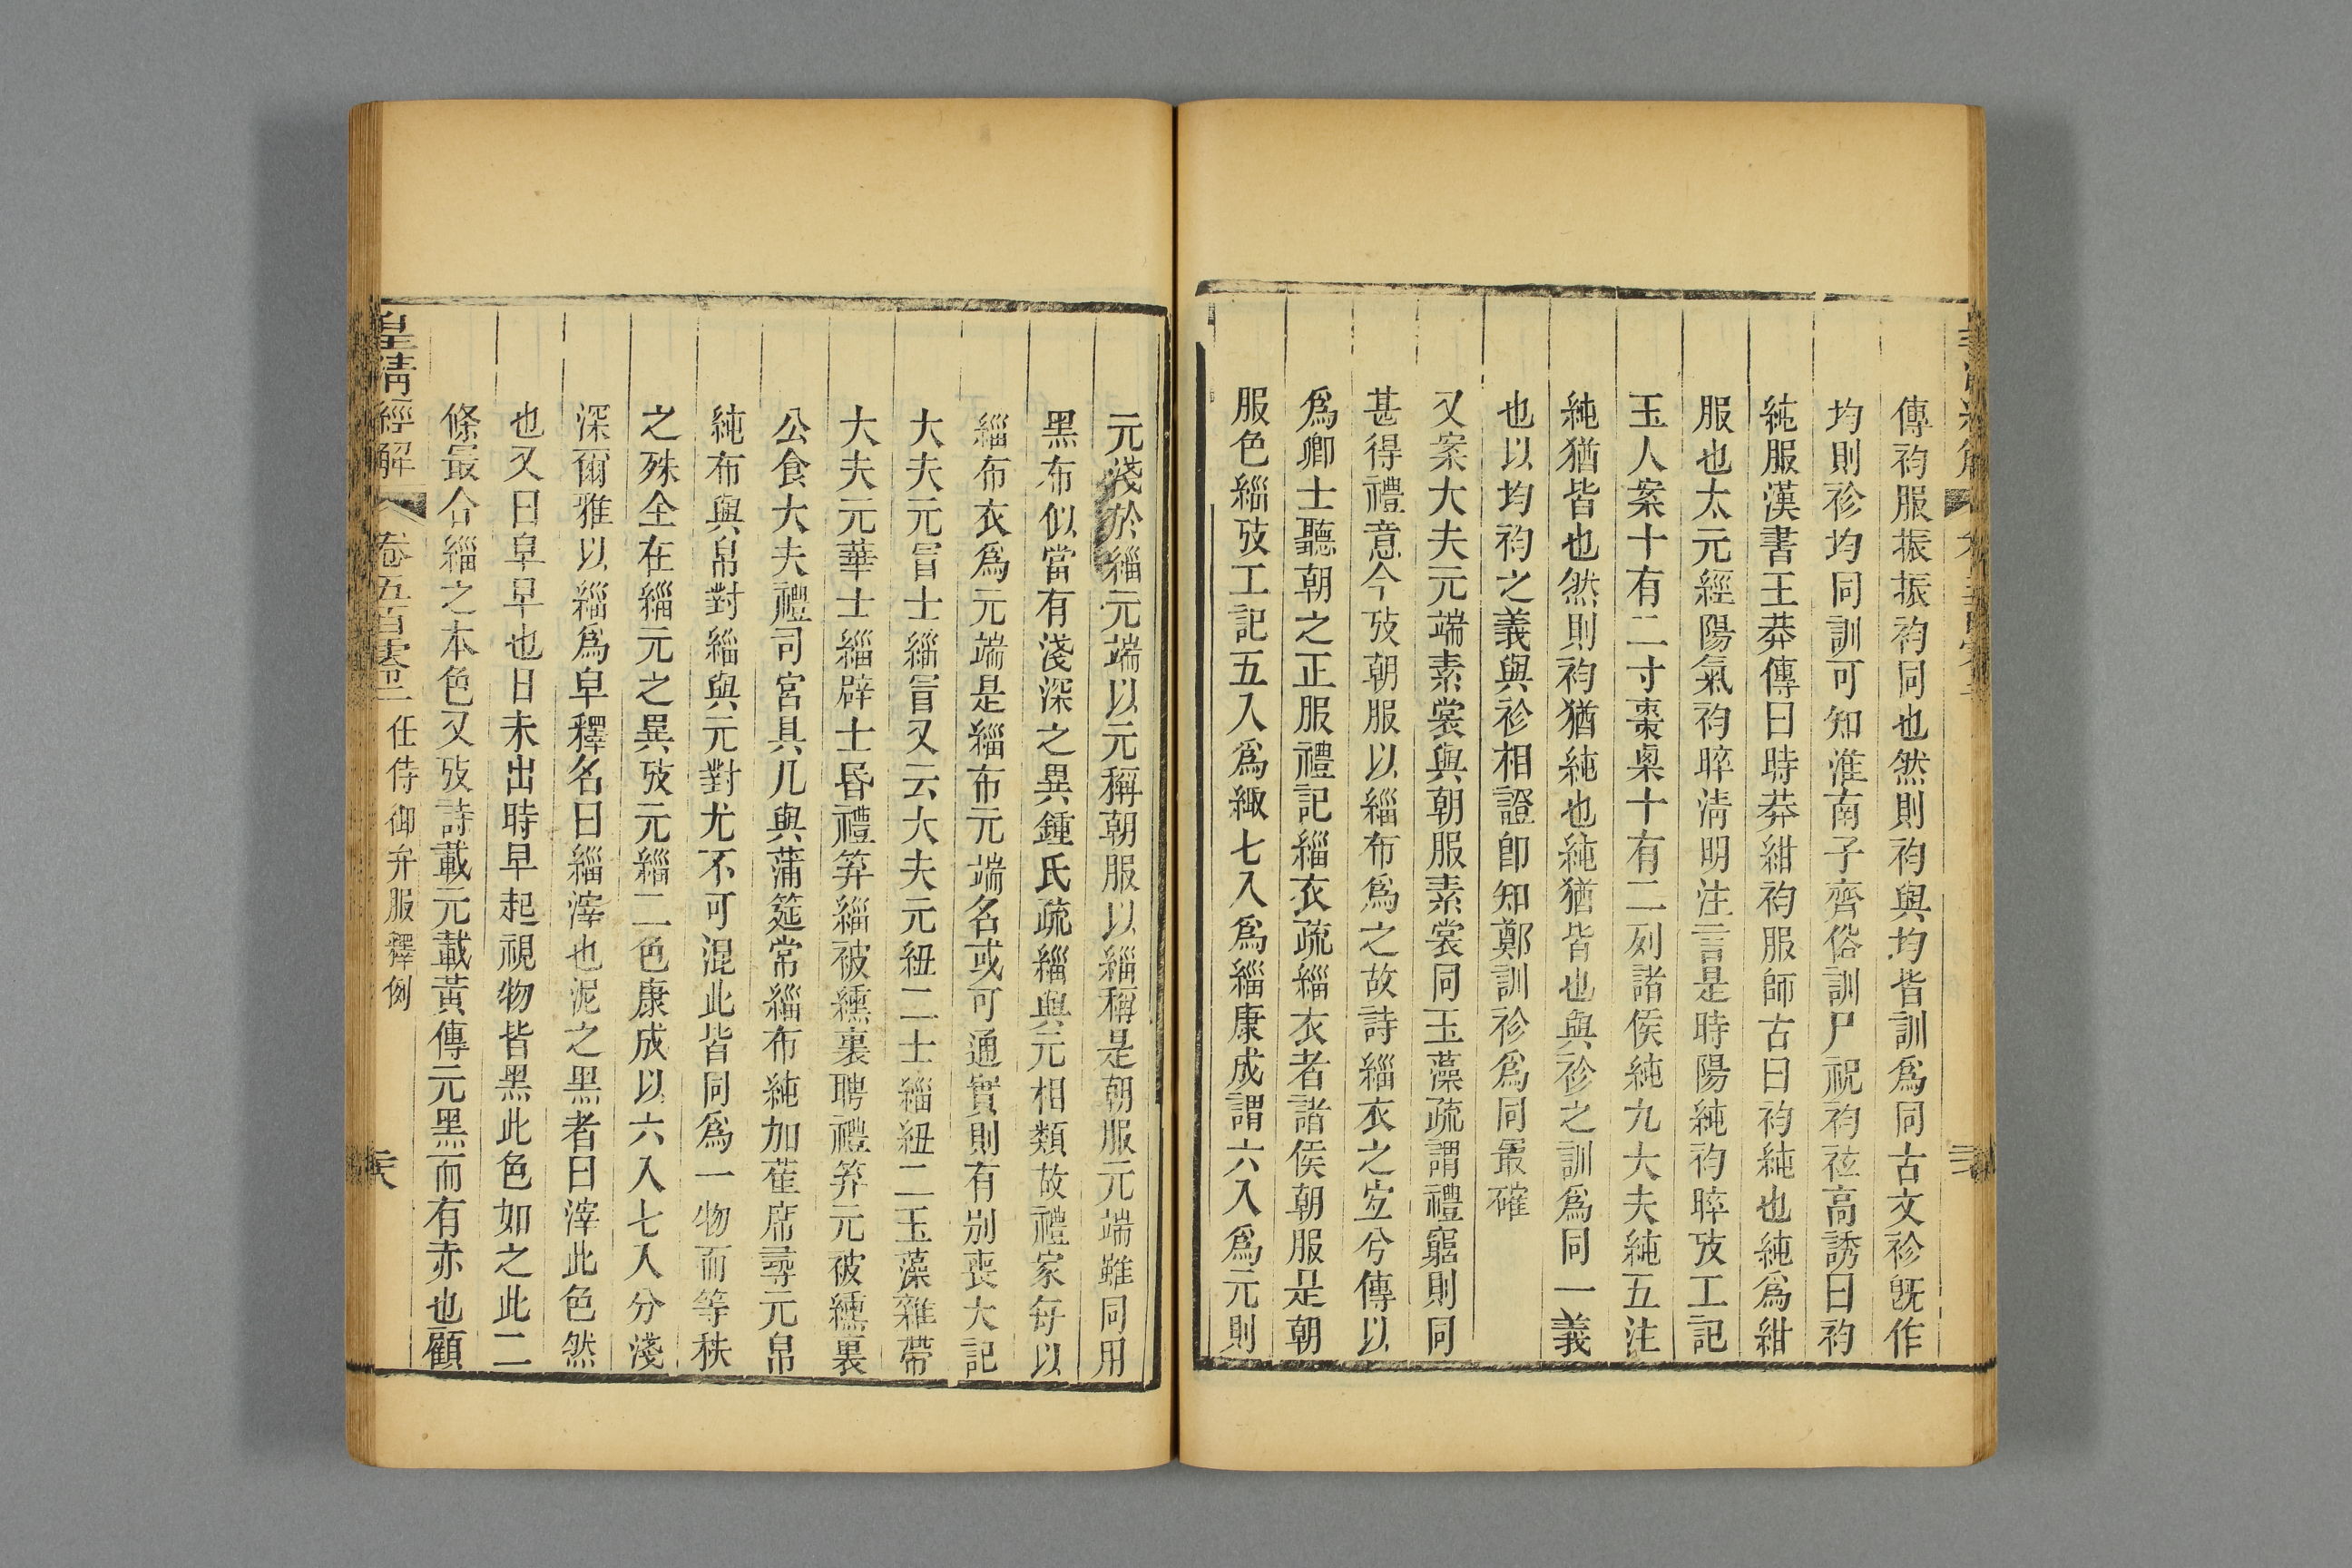 傳袀服振振袀同也然則袀與均皆訓爲同古文袗旣作
均則袗均同訓可知淮南子齊俗訓尸祝袀袨高誘曰袀
純服漢書王莽傳曰時莽紺袀服師古曰袀純也純爲紺
服也太元經陽氣袀睟淸明注言是時陽純袀睟攷工記
玉人案十有二寸棗㮚十有二列諸侯純九大夫純五注
純猶皆也然則袀猶純也純猶皆也與袗之訓爲同一義
也以均袀之義與袗相證卽知鄭訓袗爲同最確
又案大夫元端素裳與朝服素裳同玉藻疏謂禮窮則同
甚得禮意今攷朝服以緇布爲之故詩緇衣之宜兮傳以
爲卿士聽朝之正服禮記緇衣疏緇衣者諸侯朝服是朝
服色緇攷工記五入爲緅七入爲緇康成謂六入爲元則
元淺於緇元端以元稱朝服以緇稱是朝服元端雖同用
黑布似當有淺深之異鍾氏疏緇與元相類故禮家每以
緇布衣爲元端是緇布元端名或可通實則有別喪大記
大夫元冒士緇冒又云大夫元紐二士緇紐二玉藻雜帶
大夫元華士緇辟士昏禮笲緇被纁裏聘禮笲元被纁裏
公食大夫禮司宮具几與蒲筵常緇布純加萑席尋元帛
純布與帛對緇與元對尤不可混此皆同爲一物而等秩
之殊全在緇元之異攷元緇二色康成以六入七入分淺
深爾雅以緇爲皁釋名曰緇滓也泥之黑者曰滓此色然
也又曰皁早也日未出時早起視物皆黑此色如之此二
條最合緇之本色又攷詩載元載黃傳元黑而有赤也顧
皇淸經解 卷五百零三 任侍御弁服釋例 天